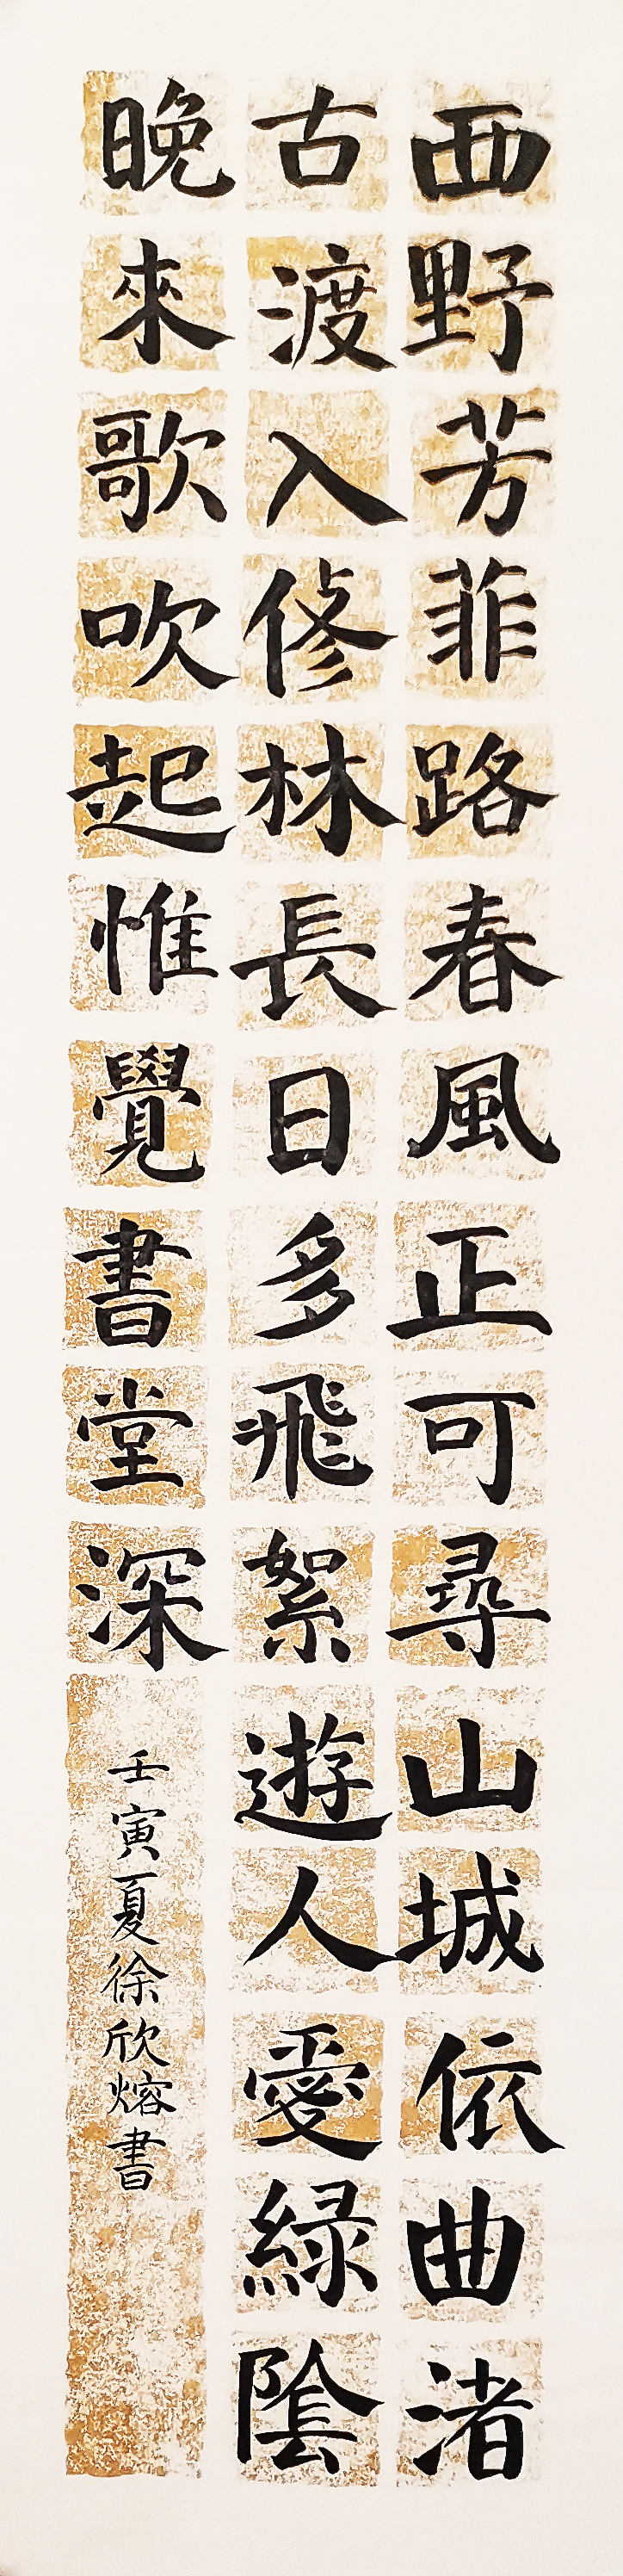 西野芳菲路春風正可尋山城依曲渚
古渡入修林長日多飛絮遊人愛緑陰
晚來歌吹起惟覺書堂深
壬寅夏徐欣熔書